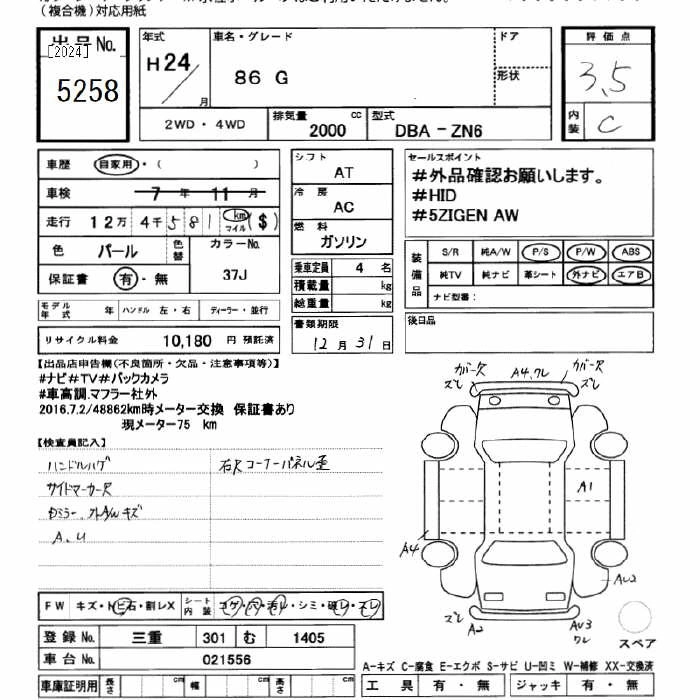 (複合機)対応用紙
出品No.
[2024]
5258
年式
H24/月
車名・グレード
86 G
ドア
形状
評価点
3.5
内装
C
2WD・4WD
排気量
2000 cc
型式
DBA-ZN6
車歴 自家用・( )
車検 7年 11月
走行 12万 4千 581 km マイル ($)
色 パール 色替 カラーNo.
保証書 有・無 37J
シフト
AT
冷房
AC
燃料
ガソリン
乗車定員 4 名
積載量 kg
総重量 kg
セールスポイント
#外品確認お願いします。
#HID
#5ZIGEN AW
装備品
S/R 純A/W P/S P/W ABS
純TV 純ナビ 革シート 外ナビ エアB
ナビ型番:
モデル年式 年 ハンドル 左・右 ディーラー・並行
リサイクル料金 10,180 円 預託済
書類期限
12月31日
後日品
【出品店申告欄(不良箇所・欠品・注意事項等)】
#ナビ#TV#バックカメラ
#車高調.マフラー社外
2016.7.2/48862km時メーター交換 保証書あり
現メーター75 km
【検査員記入】
ハンドルハゲ
サイドマーカーR
右Rコーナーパネル歪
ドアミラー、外A/Wキズ
A、U
カバーズレ
A4、ワレ
カバーズレ
A1
A4
AU2
ズレ
A2
AU3
ワレ
スペア
FW キズ・トビ石・割レX シート内装 コゲ・穴・汚レ・シミ・破レ・スレ
登録No. 三重 301 む 1405
車台No. 021556
A-キズ C-腐食 E-エクボ S-サビ U-凹ミ W-補修 XX-交換済
車庫証明用 長さ cm 幅 cm 高さ cm
工具 有・無 ジャッキ 有・無